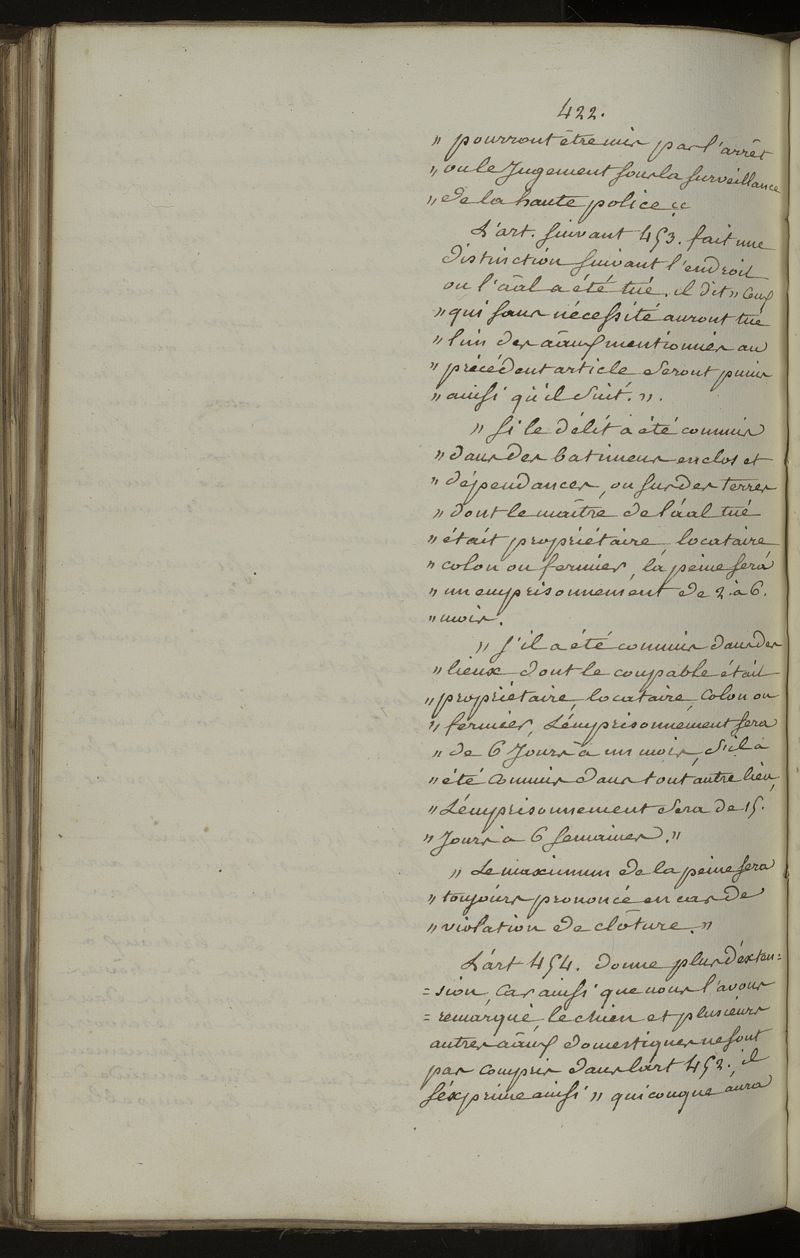 422.
„ pourront être mis par l'arrêt
„ ou le Jugement sous la surveillance
„ de la haute police "
L'art. suivant 453. fait une
distinction suivant l'endroit
ou l'āāl a été tué. il dit „ Ceux
„ qui sans nécessité auront tué
„ l'un des āāux mentionnés au
„ précédent article seront punis
„ ainsi qu'il suit. „.
„ Si le délit a été commis
„ dans des batimens enclos et
„ dépendances, ou sur des terres
„ dont le maître de l'āāl tué
„ était propriétaire locataire
„ colon ou fermier, la peine sera
„ un emprisonnement de 2. à 6.
„ mois.
„ S'il a été commis dans des
„ lieux dont le coupable était
„ propriétaire, locataire, Colon ou
„ fermier, L'émprisonnement sera
„ de 6 Jours à un mois, s'il a
„ été Commis dans tout autre lieu,
„ L'émprisonnement sera de 15.
„ Jours à 6 Semaines. „
„ Le maximum de la peine sera
„ toujours prononcé en cas de
„ violation de clôture. „
L'art 454. donne plus d'exten=
=sion, Car ainsi que nous l'avons
=remarqué, le chien et plusieurs
autres āāux domestiques ne sont
pas compris dans l'art 452. il
s'éxprime ainsi „ quiconque aura